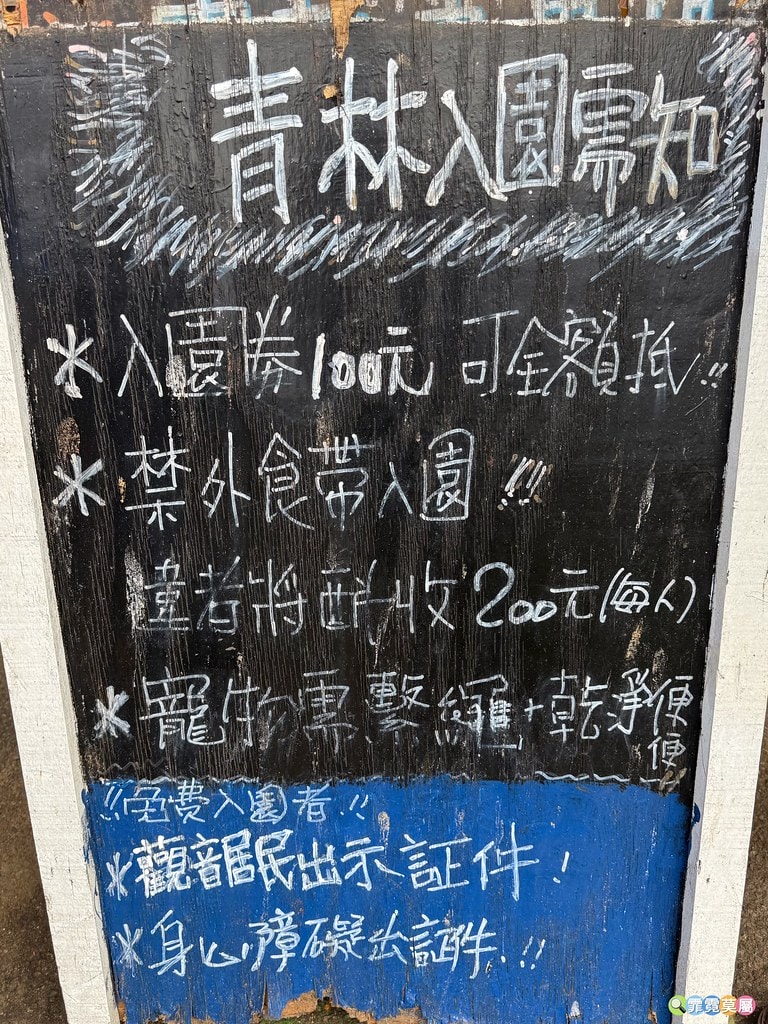 青林入園需知
*入園券100元 可全額抵!!
*禁外食帶入園!!!
違者將酌收200元(每人)
*寵物需繫繩+乾淨便便
!!免費入園者!!
*觀音居民出示証件!
*身心障礙出証件!!
霏霓莫屬